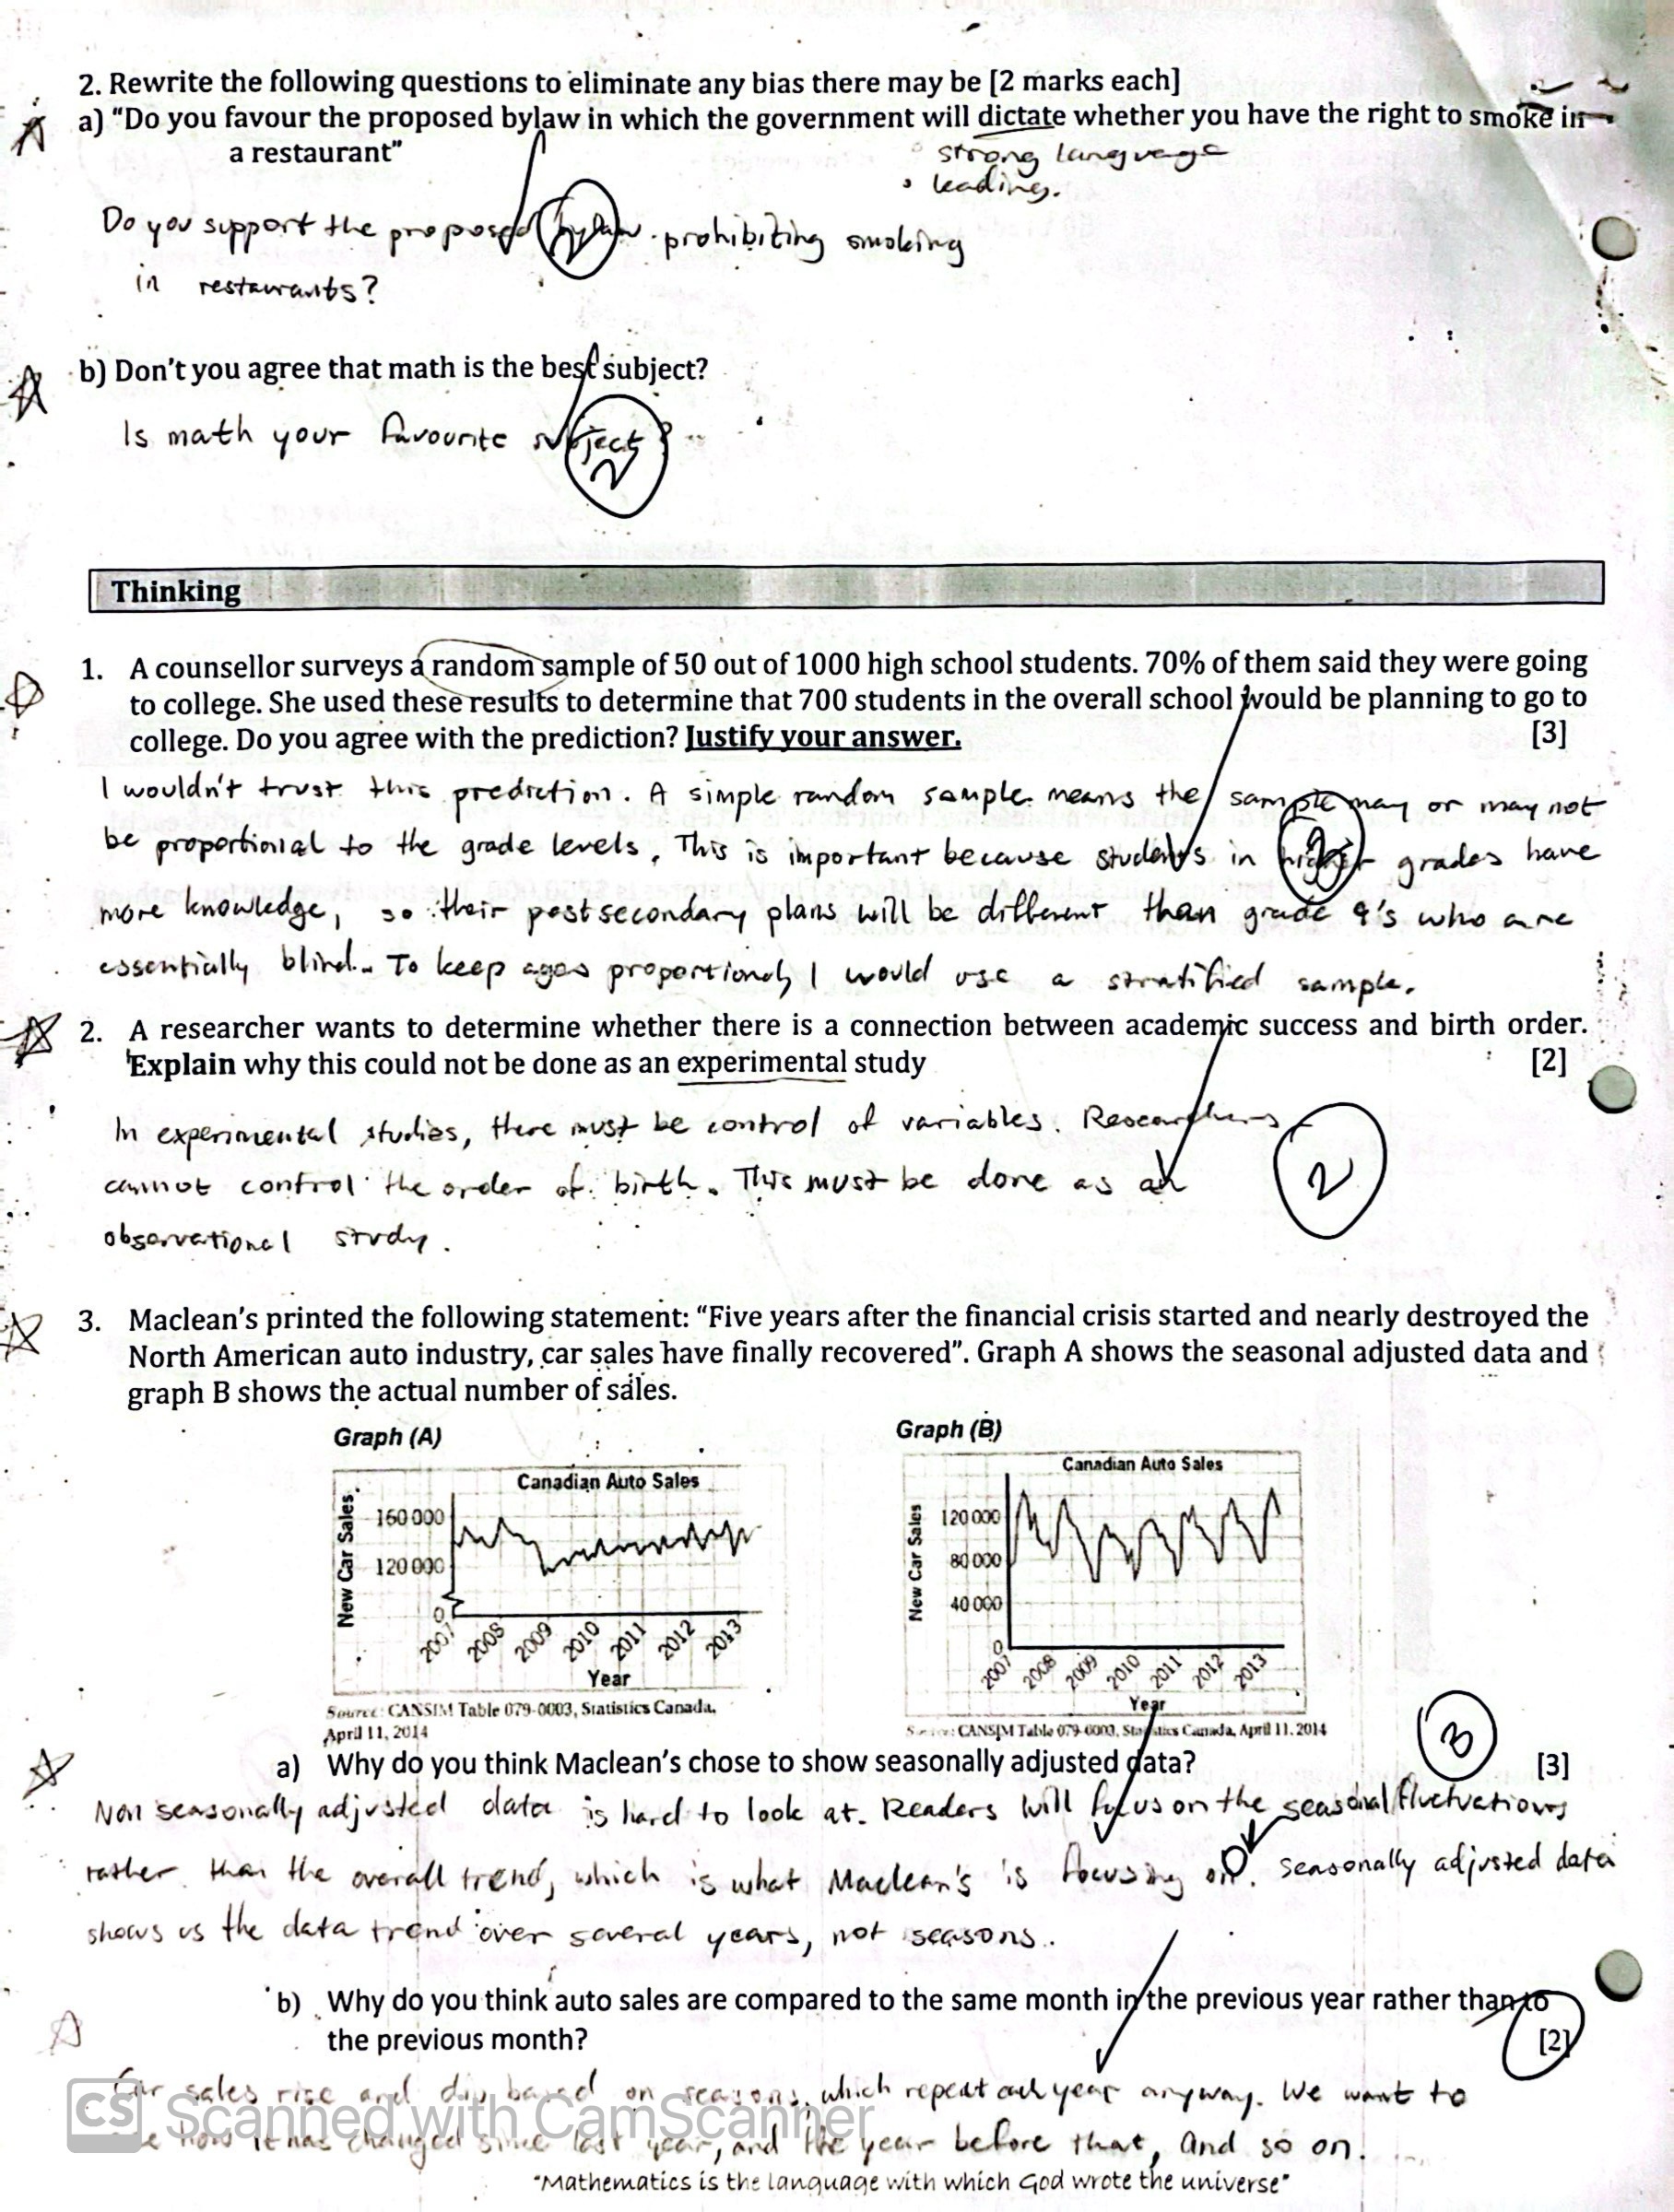 2. Rewrite the following questions to eliminate any bias there may be [2 marks each]
a) "Do you favour the proposed bylaw in which the government will dictate whether you have the right to smoke in
a restaurant"
strong language
leading.
Do you support the proposed bylaw prohibiting smoking
2
in restaurants?
b) Don't you agree that math is the best subject?
Is math your favourite subject?
2
Thinking
1. A counsellor surveys a random sample of 50 out of 1000 high school students. 70% of them said they were going
to college. She used these results to determine that 700 students in the overall school would be planning to go to
college. Do you agree with the prediction? Justify your answer. [3]
I wouldn't trust this prediction. A simple random sample means the sample may or may not
be proportional to the grade levels. This is important because students in higher grades have
3
more knowledge, so their postsecondary plans will be different than grade 9's who are
essentially blind. To keep ages proportional, I would use a stratified sample.
2. A researcher wants to determine whether there is a connection between academic success and birth order.
Explain why this could not be done as an experimental study [2]
In experimental studies, there must be control of variables. Researchers
cannot control the order of birth. This must be done as an
2
observational study.
3. Maclean's printed the following statement: "Five years after the financial crisis started and nearly destroyed the
North American auto industry, car sales have finally recovered". Graph A shows the seasonal adjusted data and
graph B shows the actual number of sales.
Graph (A)
Canadian Auto Sales
New Car Sales
160 000
120 000
0
2007 2008 2009 2010 2011 2012 2013
Year
Source: CANSIM Table 079-0003, Statistics Canada,
April 11, 2014
Graph (B)
Canadian Auto Sales
New Car Sales
120 000
80 000
40 000
0
2007 2008 2009 2010 2011 2012 2013
Year
Source: CANSIM Table 079-0003, Statistics Canada, April 11, 2014
3
a) Why do you think Maclean's chose to show seasonally adjusted data? [3]
Non seasonally adjusted data is hard to look at. Readers will focus on the seasonal fluctuations
rather than the overall trend, which is what Maclean's is focusing on. Seasonally adjusted data
shows us the data trend over several years, not seasons.
b) Why do you think auto sales are compared to the same month in the previous year rather than to
the previous month? [2]
Car sales rise and dip based on seasons, which repeat each year anyway. We want to
see how it has changed since last year, and the year before that, and so on.
CS Scanned with CamScanner
"Mathematics is the language with which God wrote the universe"